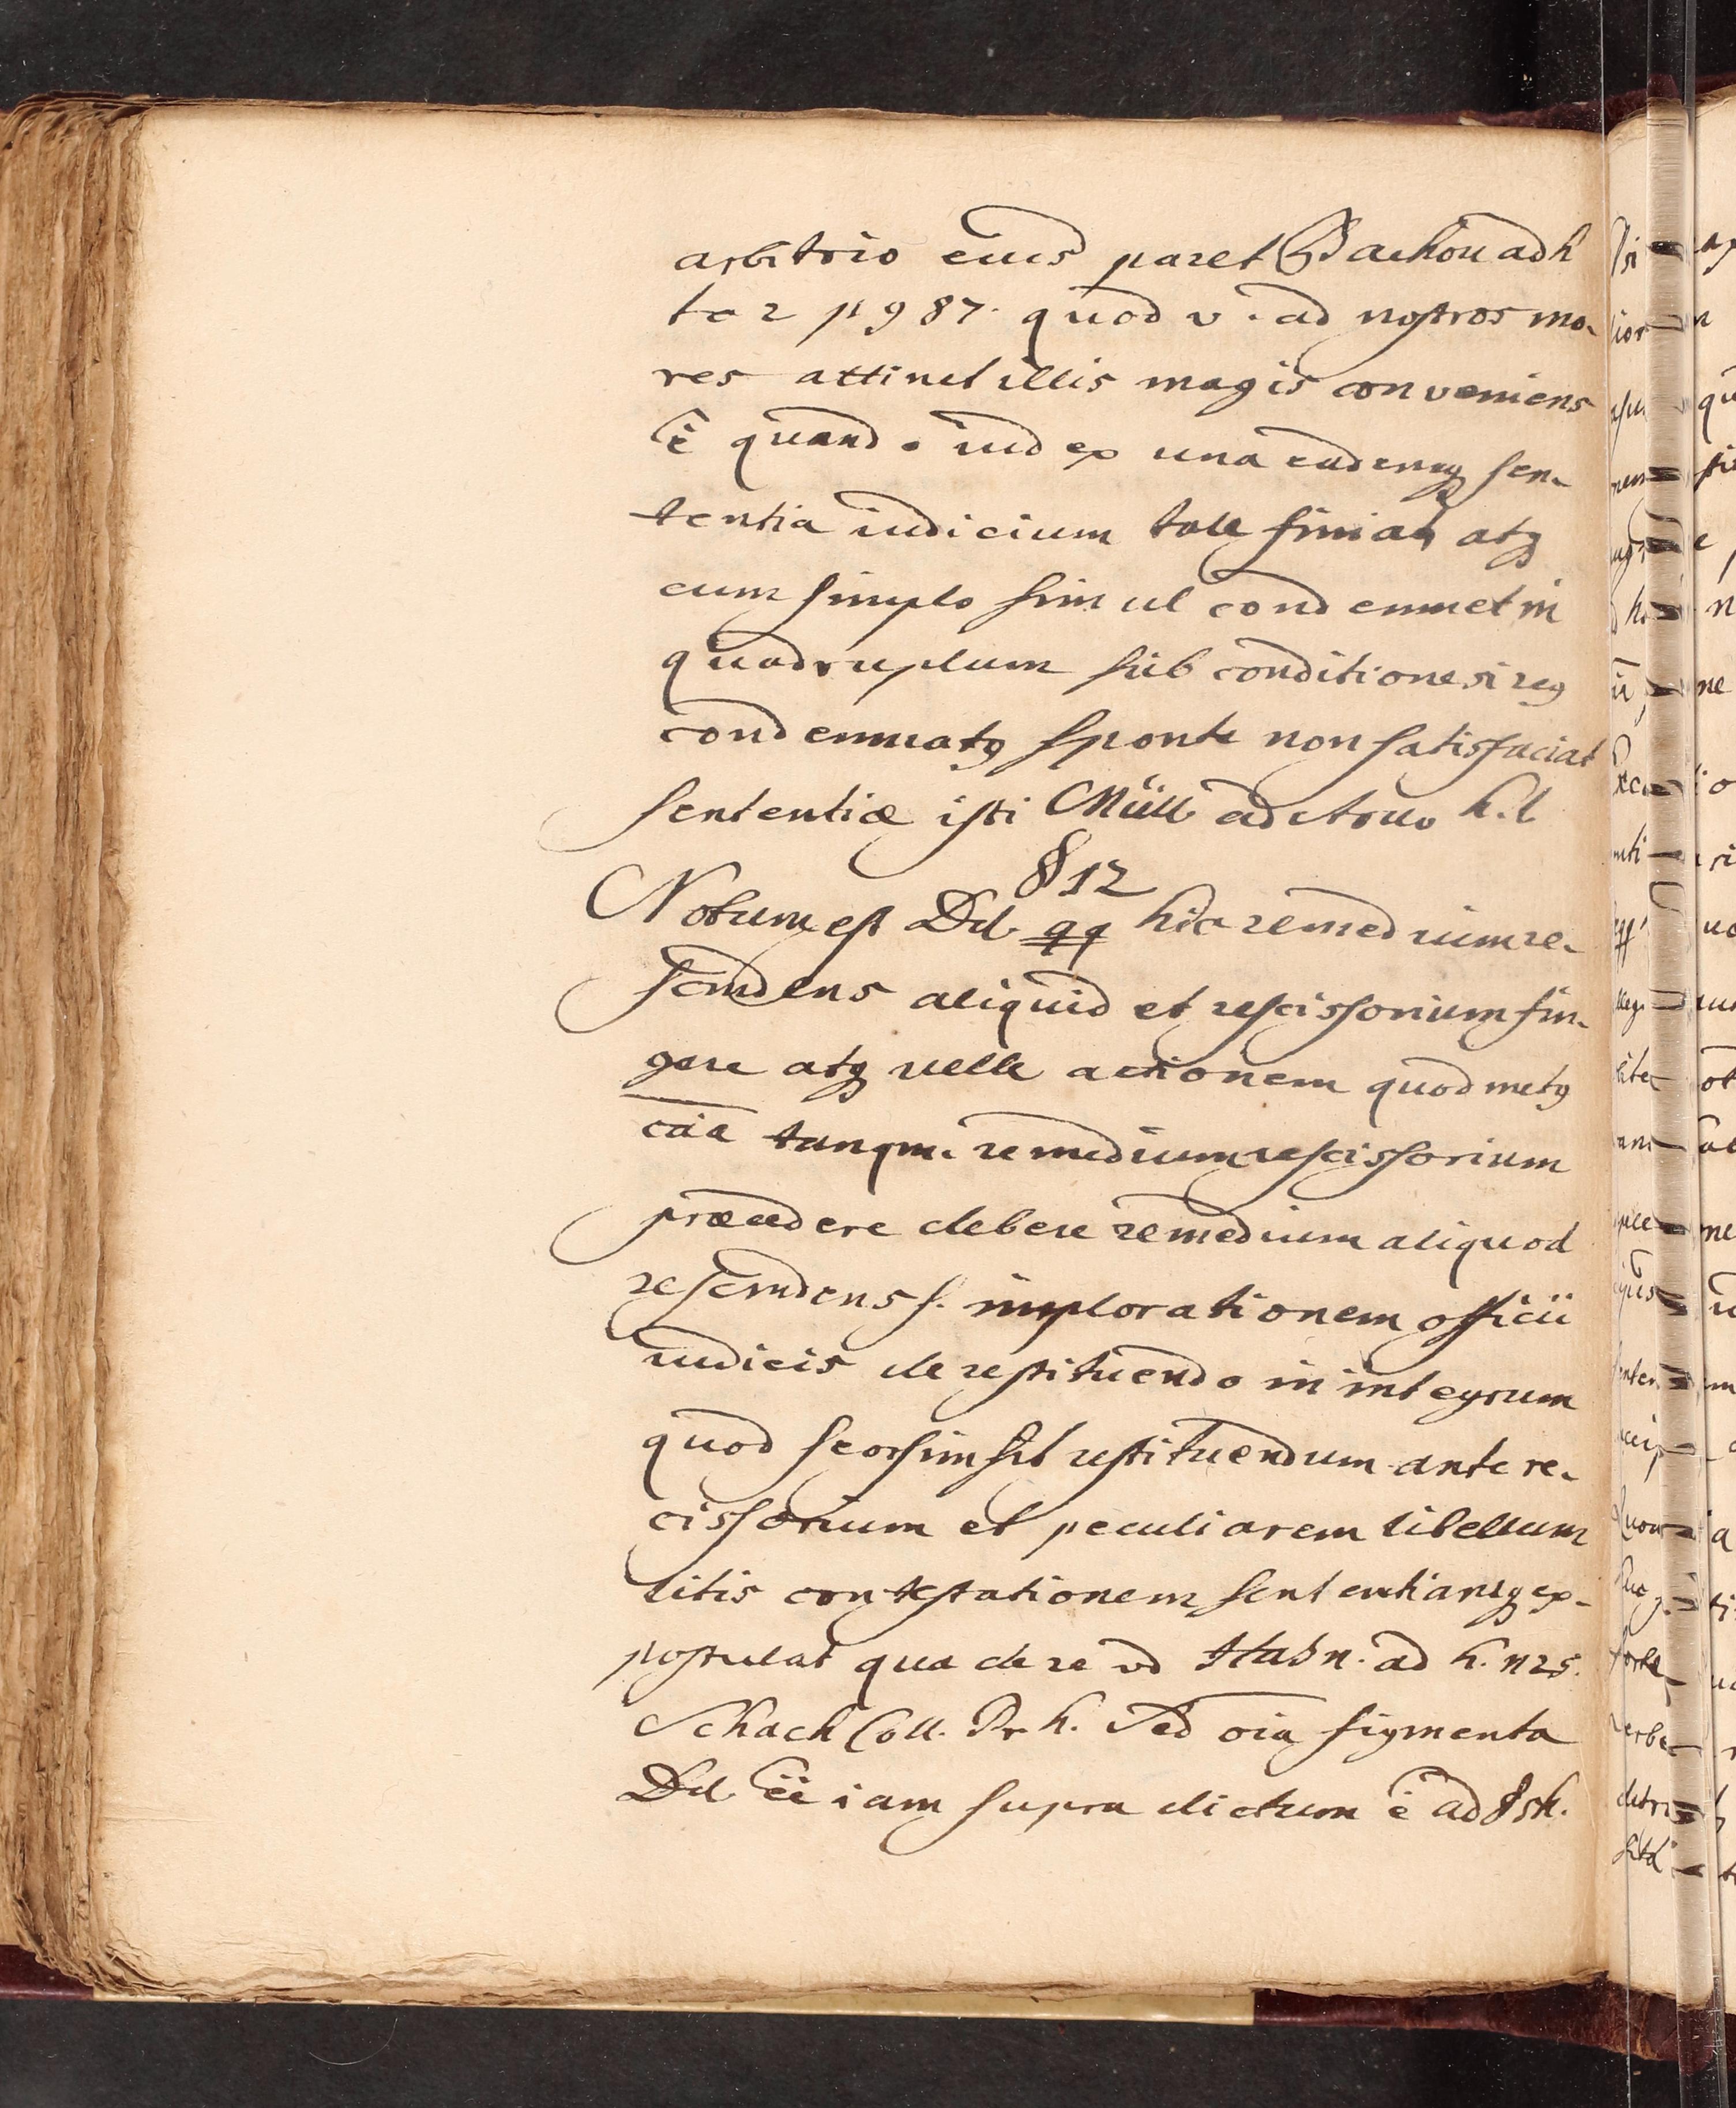 arbitrio eius paret Bachou ad h
to 2 p 987. quod v. ad nostros mo-
res attinet illis magis conveniens
ē quando iud ex una eademq sen-
tentia iudicium tale finiat atq
cum simplo simul condemnet in
quadruplum sub conditione si reg
condemnatq sponte non satisfaciat
sententiæ isti Müll ad Struv h. t
§ 12
Notum est Dd. qq hic remedium re-
scindens aliquid et rescissorium fin-
gere atq velle actionem quod metq
cāa tanqm. remedium rescissorium
præcedere debere remedium aliquod
rescindens s. implorationem officii
iudicis de restituendo in integrum
quod seorsim sit restituendum ante re-
cissorium et peculiarem libellum
litis contestationem sententiamq ex-
postulat qua de re vd Hahn. ad h. n 25.
Schach Coll. Pr h. Sed oīa figmenta
Dd. ēē iam supra dictum ē ad § 5 h.